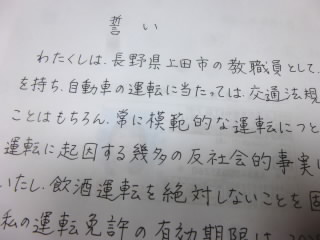 誓い
わたくしは、長野県上田市の教職員として、
を持ち、自動車の運転に当たっては、交通法規
ことはもちろん、常に模範的な運転につと
運転に起因する幾多の反社会的事実に
いたし、飲酒運転を絶対しないことを固
私の運転免許の有効期限は、20